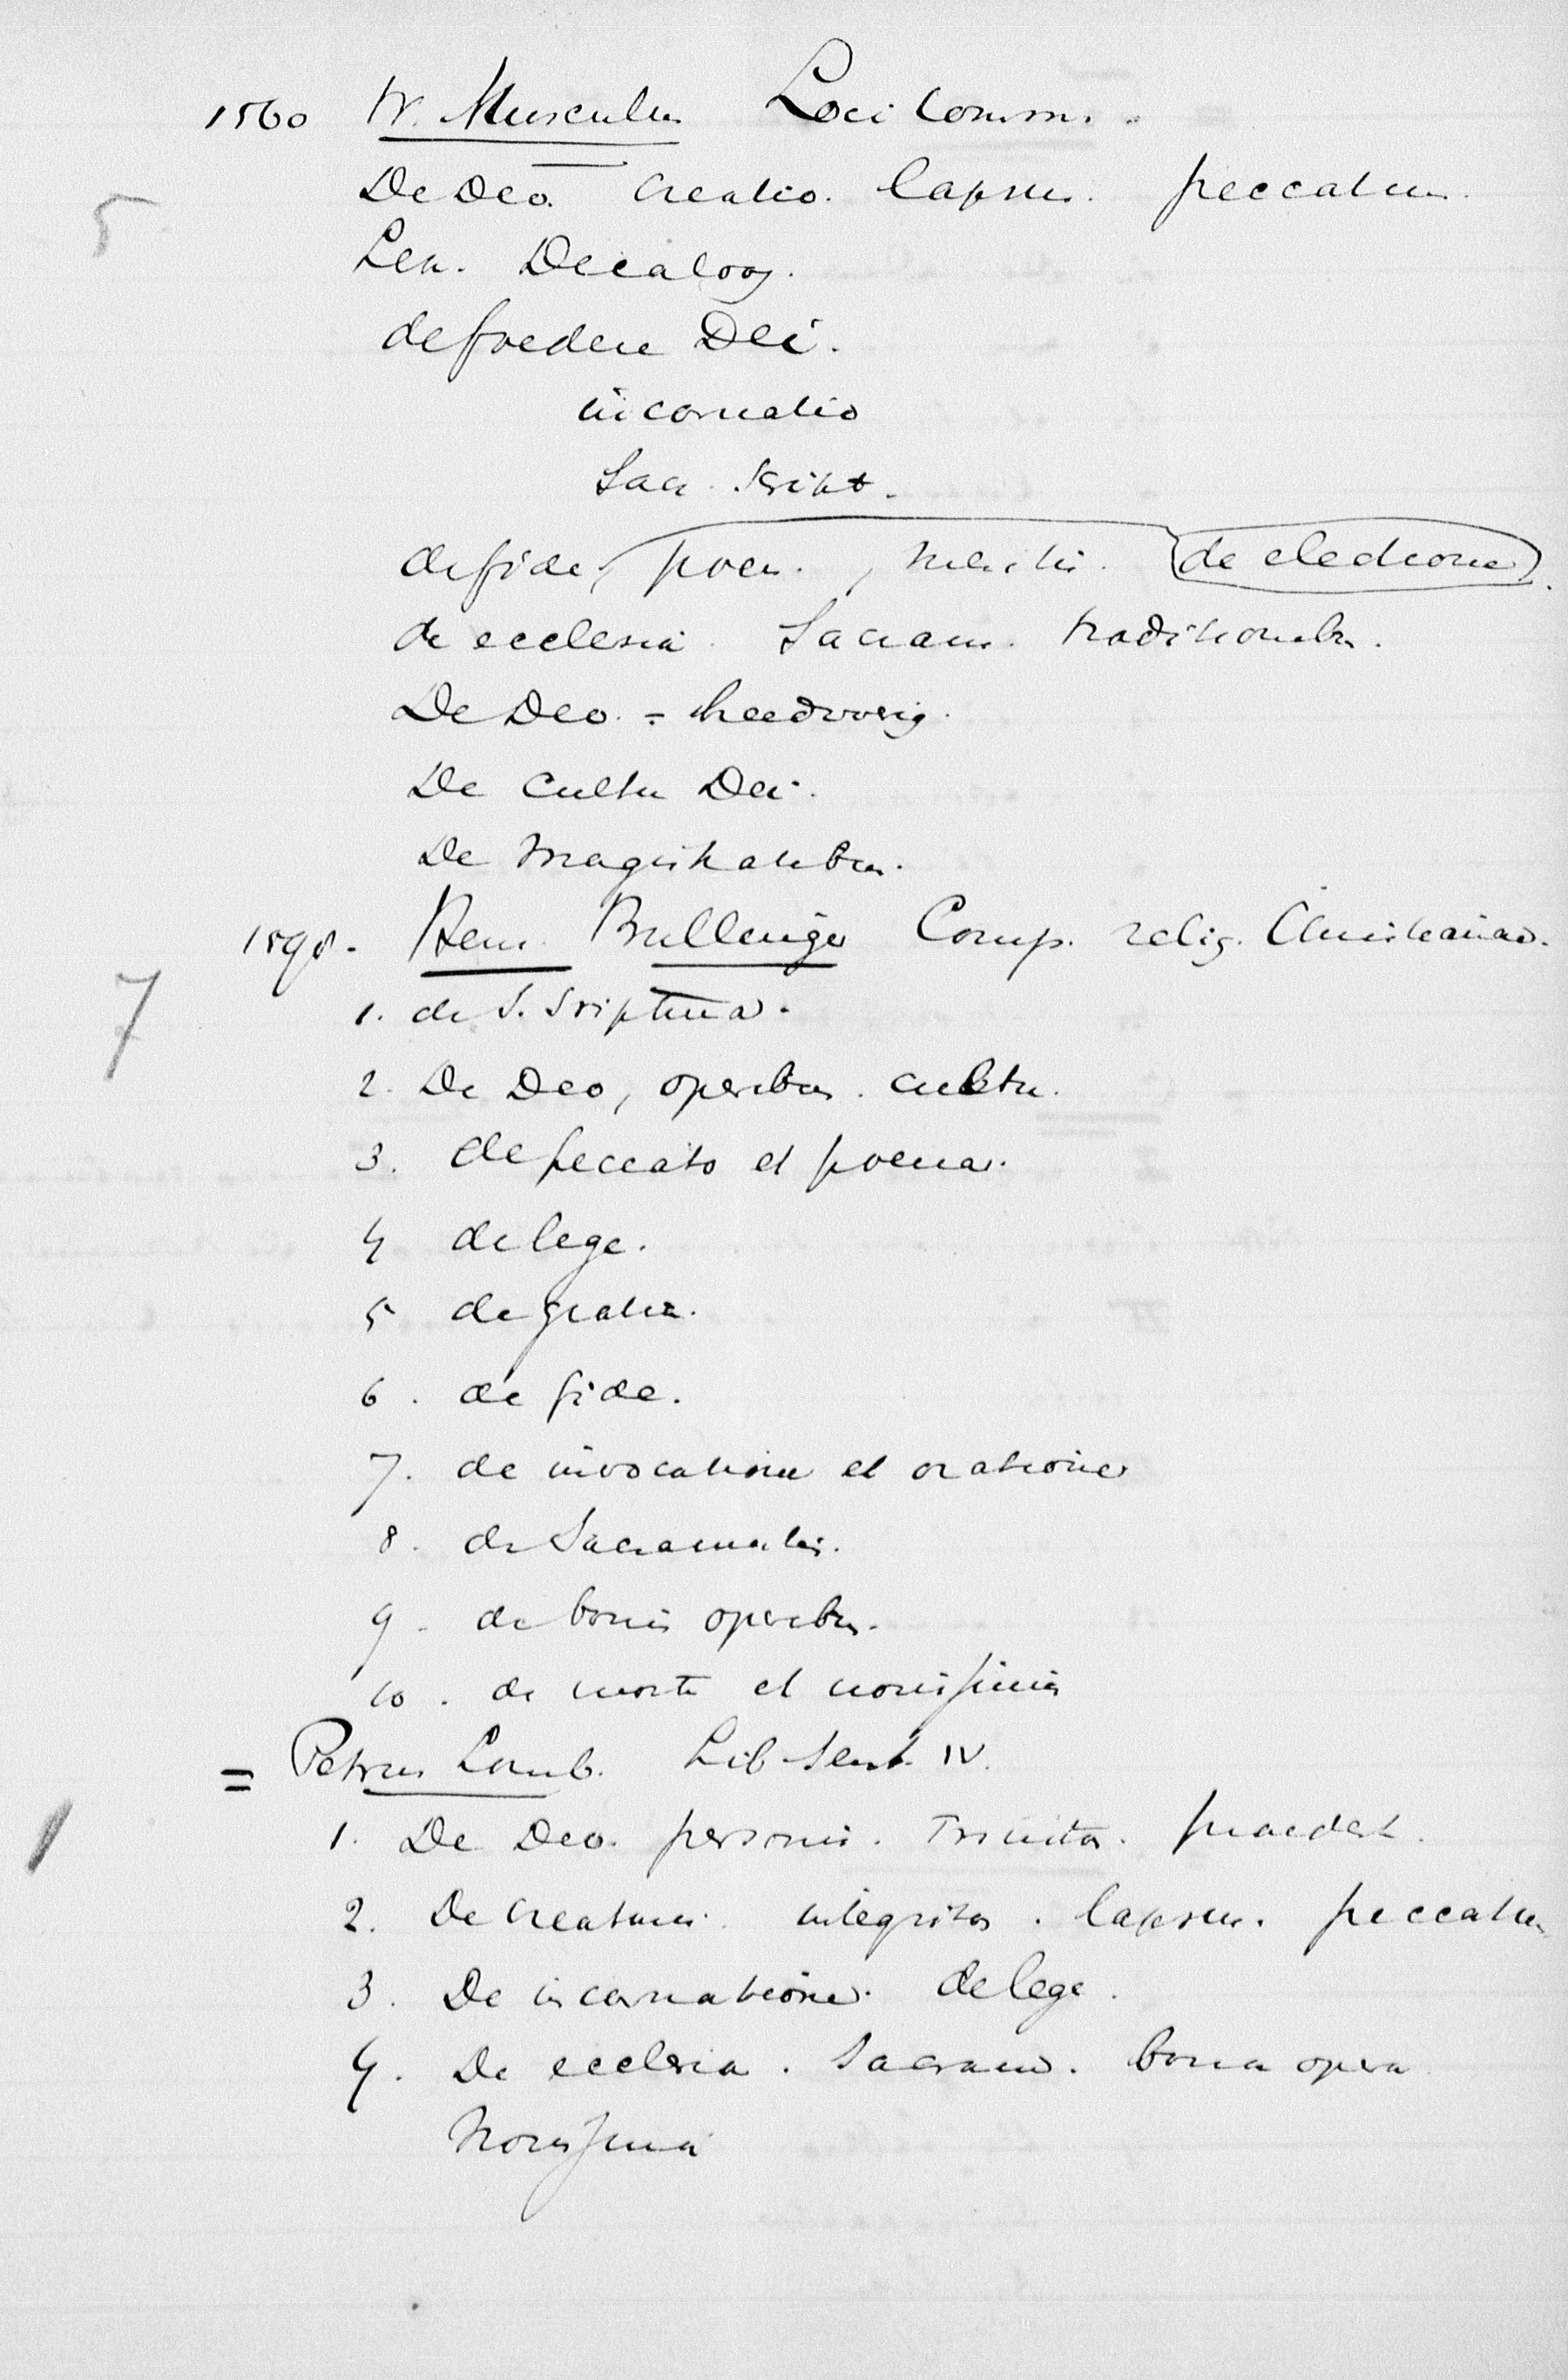 1560 W. Musculus Loci Comm.
5 De Deo. Creatio. lapsus. peccatum.
Lex. Decalog.
de foedere Dei.
incarnatio
Sacr. Script.
de fide, poen. , de electione.
de ecclesia. Sacram. traditionibus.
De Deo. =
De Cultu Dei.
De Magistratibus.
1598. Henr. Bullinger Comp. relig. Christianae.
7 1. de S. Scriptura.
2. De Deo, operibus. cultu.
3. de peccato et poena.
4 de lege.
5 de gratia.
6. de fide.
7. de invocatione et oratione
8. de Sacramentis.
9. de bonis operibus.
10. de morte et novissimis
= Petrus Lomb. Lib Sent. IV.
1 1. De Deo. personis. Trinitas. praedest.
2. De creaturis. integritas. lapsus. peccatum
3. De incarnatione. de lege.
4. De ecclesia. Sacram. bona opera
Novissima